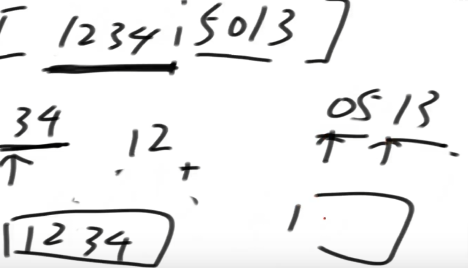 [ 1234 ; 5013 ]
34 12 + 05 13
11234 1